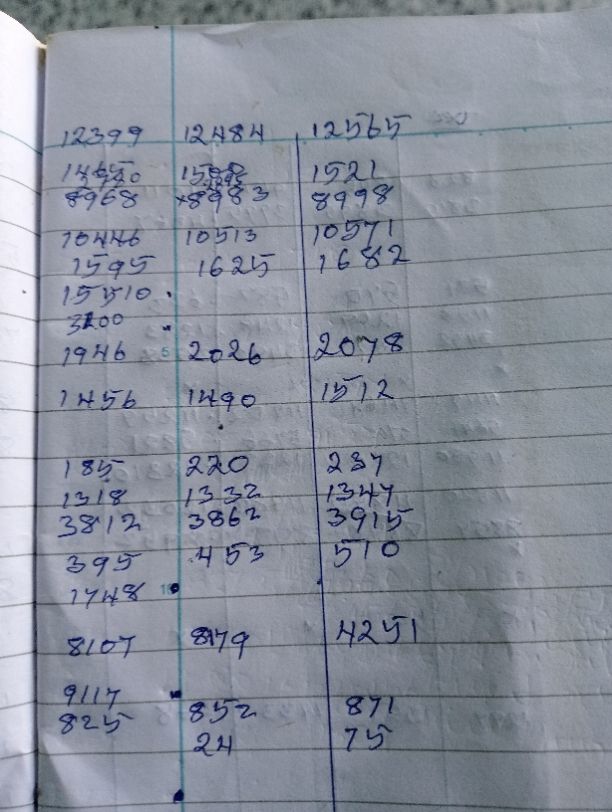 12399 12484 12565
1521
8968 ×8983 8998
10446 10513 10571
1595 1625 1682
15510
3200
1946 2026 2078
1456 1490 1512
185 220 237
1318 1332 1347
3812 3862 3915
395 453 510
1748
8107 8179 4251
9117
825 852 871
24 75